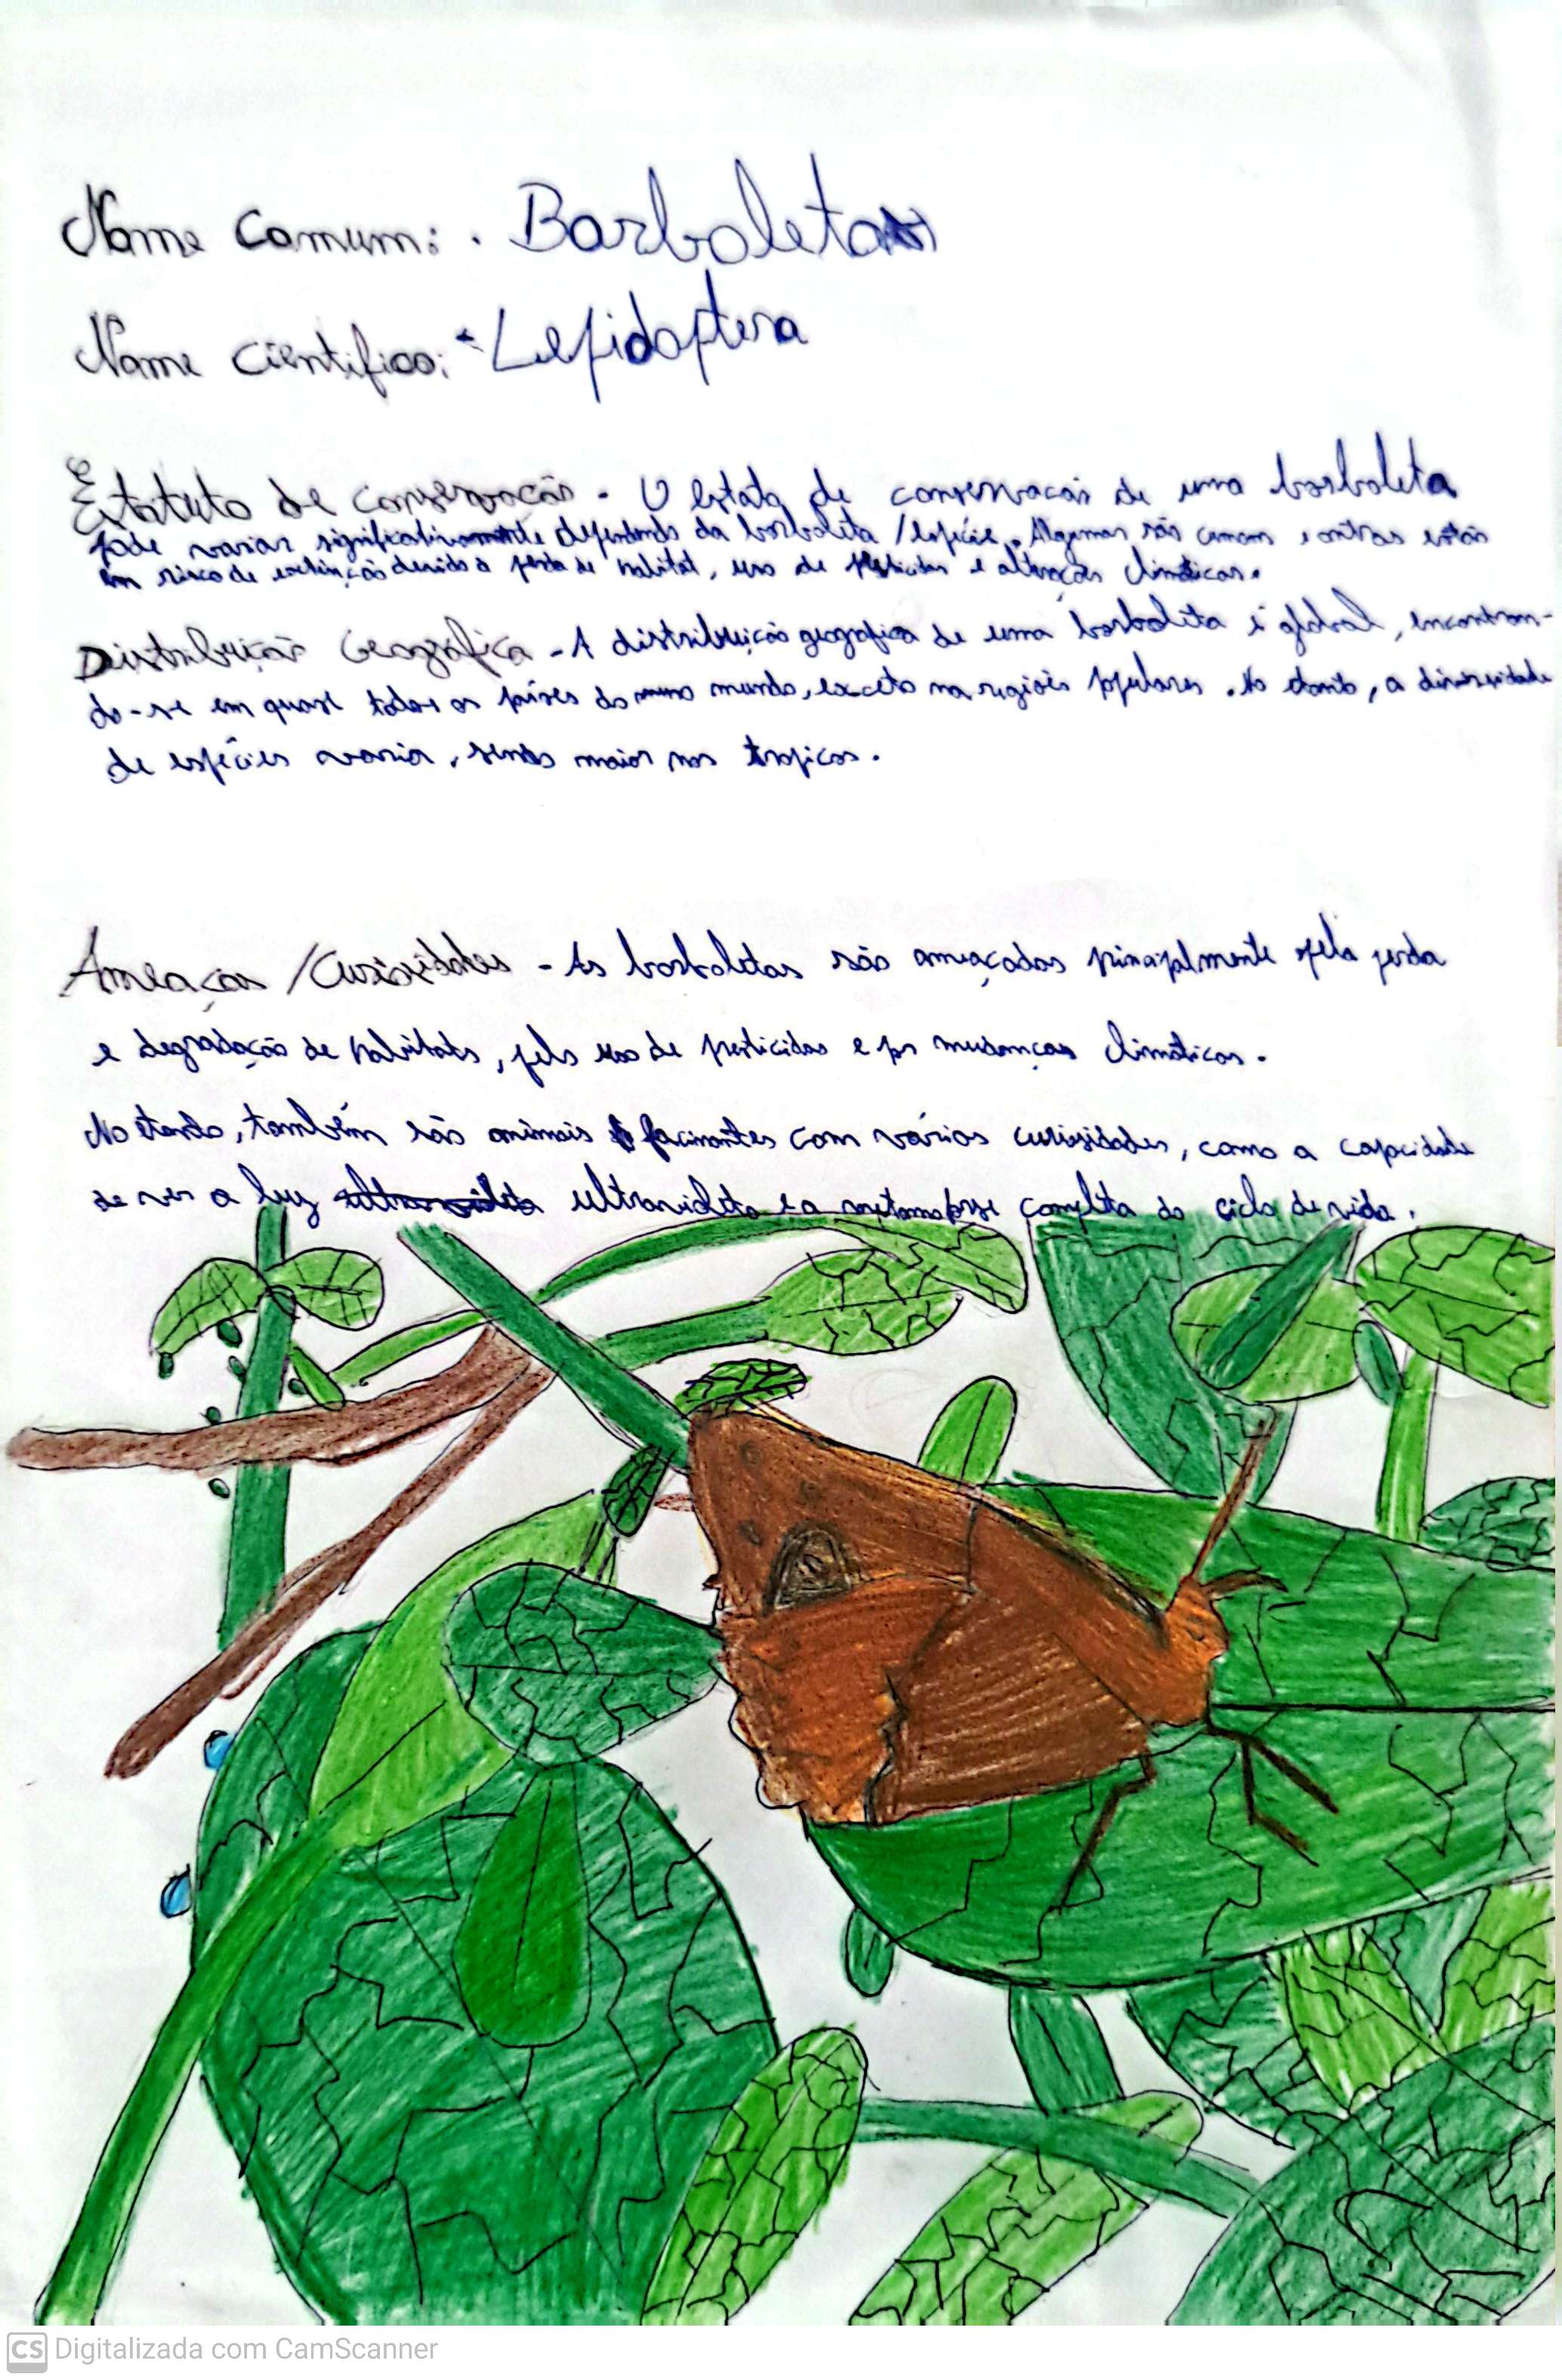 Nome Comum: . Borboleta
Nome Científico: - Lepidoptera
Estatuto de Conservação - O estato de conservacão de uma borboleta
pode variar significativamente dependendo da borboleta / espécie. Algumas são comuns e outras estão
em risco de extinção devido à perda de habitat, uso de pesticidas e alterações climáticas.
Distribuição Geográfica - A distribuição geográfica de uma borboleta é global, encontran-
do-se em quase todos os países do mundo, exceto na regiões polares. No etanto, a diversidade
de espécies varia, sendo maior nos tropicos.
Ameaças / Curiosidades - As borboletas são ameaçadas principalmente pela perda
e degradação de habitats, pelo uso de pesticidas e por mudanças climáticas.
No etanto, também são animais facinantes com vários curiosidades, como a capacidade
de ver a luz ultravioleta e a metamorfose completa do ciclo de vida.
CS Digitalizada com CamScanner